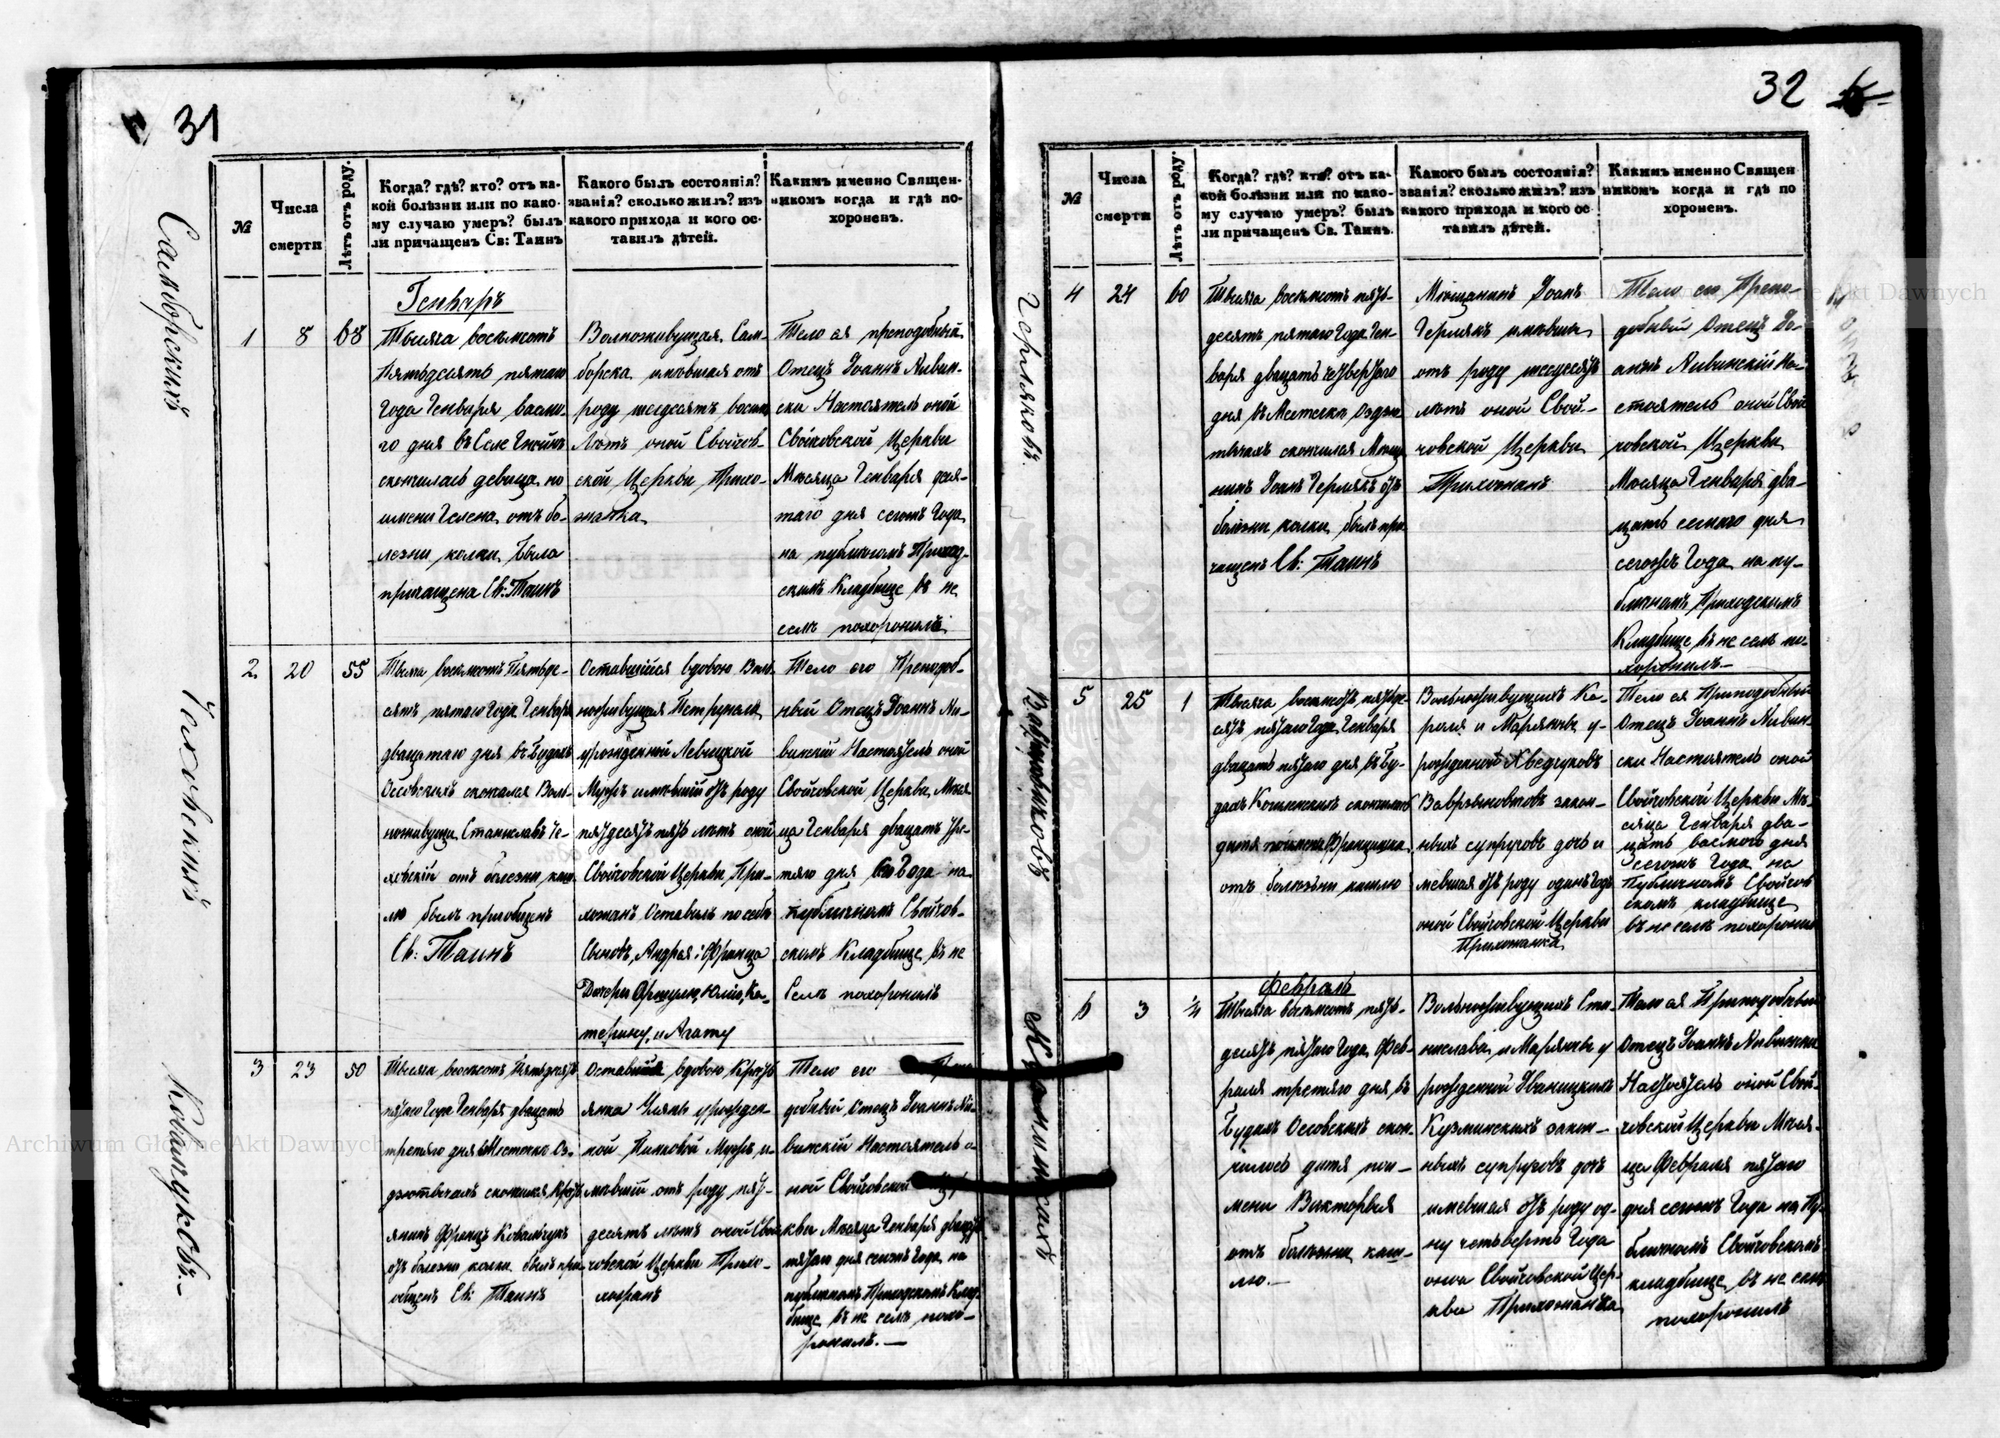 31
Самборскихъ
Чеховский
Ковальчуковъ.
№
Числа
смерти
Лѣтъ отъ роду.
Когда? гдѣ? кто? отъ ка-
кой болѣзни или по како-
му случаю умеръ? былъ
ли причащенъ Св: Таинъ
Какого былъ состоянія?
званія? сколько жилъ? изъ
какого прихода и кого ос-
тавилъ дѣтей.
Какимъ именно Священ-
никомъ когда и гдѣ по-
хороненъ.
Генварь
1 8 68
Тысяча восемсотъ
Пятьдесятъ пятого
Года Генваря восмо-
го дня въ Селе
скончилась девица по
имени Гелена отъ бо-
лезни колки была
причащена Св: Таинъ
Волножывущая Сам-
борска имевшая отъ
роду шесдесятъ восемъ
Лѣтъ оной Свойчов-
ской Церкви Прихо-
жанка
Тело ея преподобный
Отецъ Іоаннъ Ливин-
ски Настоятель оной
Свойчовской Церкви
Месяца Генваря деся-
таго дня сегожъ Года
на публичномъ Приход-
скимъ Кладбище въ не
семъ похоронилъ
2. 20 55
Тысяча восемсотъ Пятьде-
сятъ пятого Года Генваря
дванцтаго дня въ Будахъ
Осовскихъ скончался Воль-
ножывущи Станиславъ Че-
ховскій отъ болезни каш-
лю былъ приобщенъ
Св: Таинъ
Оставшійся вдовою Воль-
ножывущая Петрунеля
урожденной Левицкой
Мужъ имевшій отъ роду
пятдесятъ пять летъ оной
Свойчовской Церкви При-
хожанъ Оставилъ по себе
Сыновъ, Андрея і Франца
Дочери Юлію, Ка-
терину, и Агату
Тело его Преподоб-
ный Отецъ Іоаннъ Ли-
винскій Настоятель оной
Свойчовской Церкви Меся-
ца Генваря дванцать тре-
тяго дня Года на
публичномъ Свойчов-
скомъ Кладбище въ не
Семъ похоронилъ
3 23 50
Тысяча восемсотъ Пятьдесятъ
пятого Года Генваря дванцать
третяго дня въ Местечко Оз-
дютычахъ скончился Кресть-
янинъ Францъ Ковальчукъ
отъ болезни колки былъ при-
общенъ Св: Таинъ
вдовою Кресть-
янка урожден-
ной Мужъ и-
мевший отъ роду пят-
десятъ летъ оной Свой-
човской Церкви Прихо-
жанъ
Тело его
добный Отецъ Іоаннъ Ли-
винскій Настоятель о-
ной Свойчовской
кви Месяца Генваря дванцать
пятого дня сегожъ Года на
публичномъ Приходскомъ Клад-
бище въ не семъ похо-
ронилъ.—
32
Герляковъ.
№
Числа
смерти
Лѣтъ отъ роду.
Когда? гдѣ? кто? отъ ка-
кой болѣзни или по како-
му случаю умеръ? былъ
ли причащенъ Св. Таинъ.
Какого былъ состоянія?
званія? сколько жилъ? изъ
какого прихода и кого ос-
тавилъ дѣтей.
Какимъ именно Священ
никомъ когда и гдѣ по
хороненъ.
4 24 60
Тысяча восемсотъ пять-
десятъ пятого Года Ген-
варя дванцать четвертого
дня въ Местечко Оздю-
тычахъ скончился Меща-
нинъ Іоанъ Герлякъ отъ
болезни колки былъ при-
чащенъ Св: Таинъ
Мещанинъ Іоанъ
Герлякъ имевши
отъ роду шесдесятъ
летъ оной Свой-
човской Церкви
Прихожанъ
Тело его Препо-
добный Отецъ Іо-
аннъ Ливинскій На-
стоятель оной Свой
човской Церкви
Месяца Генваря два-
нцать семого дня
сегожъ Года на пу-
бличномъ Приходскимъ
Кладбище въ не семъ по-
хоронилъ—
5 25 1
Тысяча восемсотъ пятьде-
сятъ пятого Года Генваря
дванцать пятого дня въ Бу-
дахъ скончилось
дитя поимени Францишка
отъ болезни кашлю
Вольножывущихъ Ка-
роля и Марянны у-
рожденной Хведчуковъ
закон-
ныхъ супруговъ дочь и-
мевшая отъ роду одинъ Годъ
оной Свойчовской Церкви
Прихожанка
Тело ея Преподобный
Отецъ Іоаннъ Ливин-
ски Настоятель оной
Свойчовской Церкви Ме-
сяца Генваря два-
нцать восмого дня
сегожъ Года на
Публичномъ Свойчов
скомъ кладбище
въ не семъ похоронилъ
Февраль
6 3 ¼
Тысяча восемсотъ пять-
десятъ пятого Года Фев-
раля третяго дня въ
Будахъ Осовскихъ скон-
чилось дитя пои-
мени Викторыя
отъ болезни каш-
лю.—
Вольножывущихъ Ста-
нислава и Марянны у
рожденной Иваницкихъ
Кузминскихъ закон-
ныхъ супруговъ дочь
имевшая отъ роду од-
ну четверть Года
оной Свойчовской Цер-
кви Прихожанка
Тело ея Преподобный
Отецъ Іоаннъ Ливински
Настоятель оной Свой-
човской Церкви Меся-
ца Февраля пятого
дня сегожъ Года на Пу-
бличномъ Свойчовскомъ
кладбище въ не семъ
похоронилъ
Archiwum Główne Akt Dawnych
Archiwum Główne Akt Dawnych